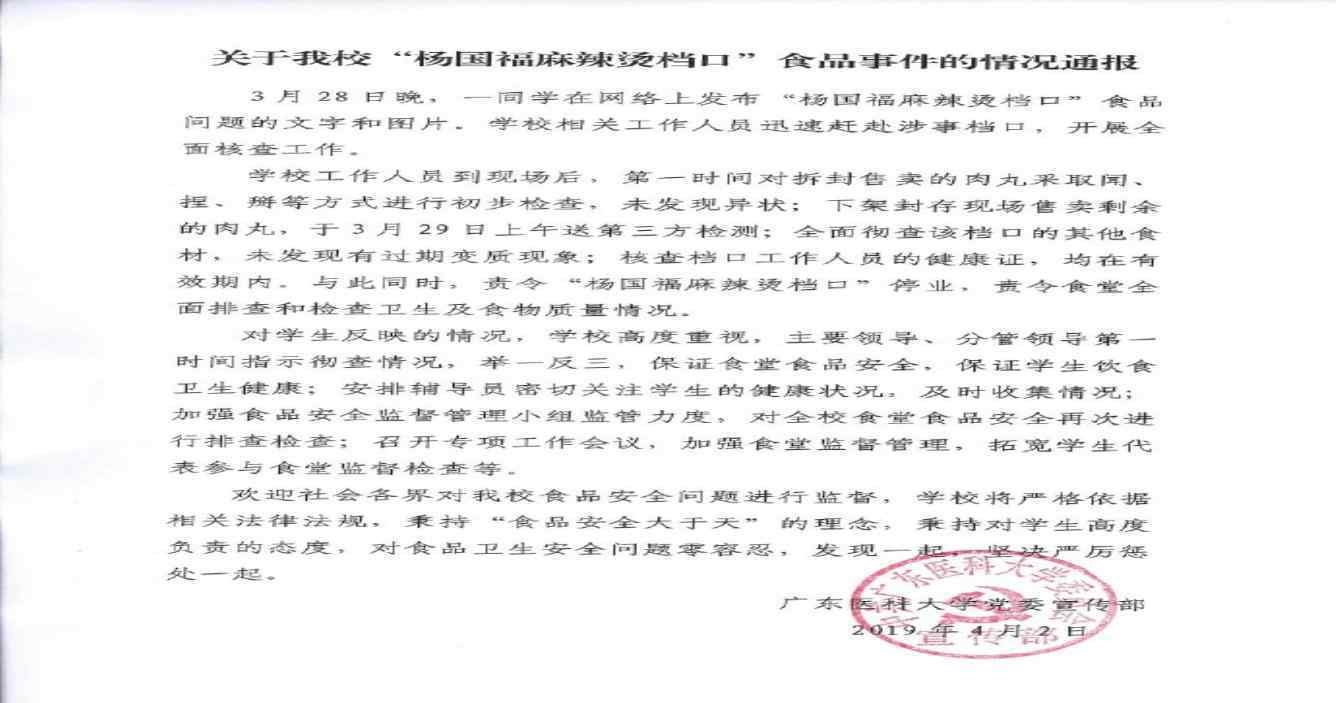 关于我校“杨国福麻辣烫档口”食品事件的情况通报
3月28日晚，一同学在网络上发布“杨国福麻辣烫档口”食品
问题的文字和图片。学校相关工作人员迅速赶赴涉事档口，开展全
面核查工作。
学校工作人员到现场后，第一时间对拆封售卖的肉丸采取闻、
捏、掰等方式进行初步检查，未发现异状；下架封存现场售卖剩余
的肉丸，于3月29日上午送第三方检测；全面彻查该档口的其他食
材，未发现有过期变质现象；核查档口工作人员的健康证，均在有
效期内。与此同时，责令“杨国福麻辣烫档口”停业，责令食堂全
面排查和检查卫生及食物质量情况。
对学生反映的情况，学校高度重视，主要领导、分管领导第一
时间指示彻查情况，举一反三，保证食堂食品安全，保证学生饮食
卫生健康；安排辅导员密切关注学生的健康状况，及时收集情况；
加强食品安全监督管理小组监管力度，对全校食堂食品安全再次进
行排查检查；召开专项工作会议，加强食堂监督管理，拓宽学生代
表参与食堂监督检查等。
欢迎社会各界对我校食品安全问题进行监督，学校将严格依据
相关法律法规，秉持“食品安全大于天”的理念，秉持对学生高度
负责的态度，对食品卫生安全问题零容忍，发现一起，坚决严厉惩
处一起。
广东医科大学党委宣传部
2019年4月2日
中共广东医科大学委员会
宣传部